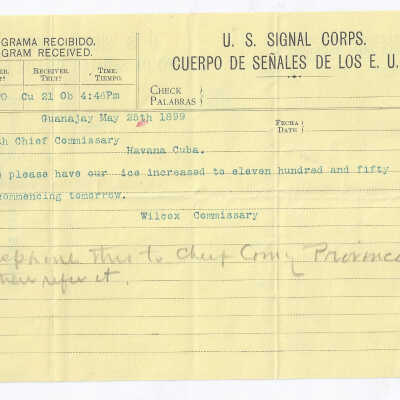 GRAMA RECIBIDO.
GRAM RECEIVED.
U. S. SIGNAL CORPS.
CUERPO DE SEÑALES DE LOS E. U.
RECEIVER.
TELT?
TIME.
TIEMPO.
CHECK
PALABRAS
Cu 21 Ob 4:46Pm
Guanajay May 25th 1899
FECHA
DATE
th Chief Commissary
Havana Cuba.
please have our ice increased to eleven hundred and fifty
commencing tomorrow.
Wilcox Commissary
this to Chief Comy Province
refer it.